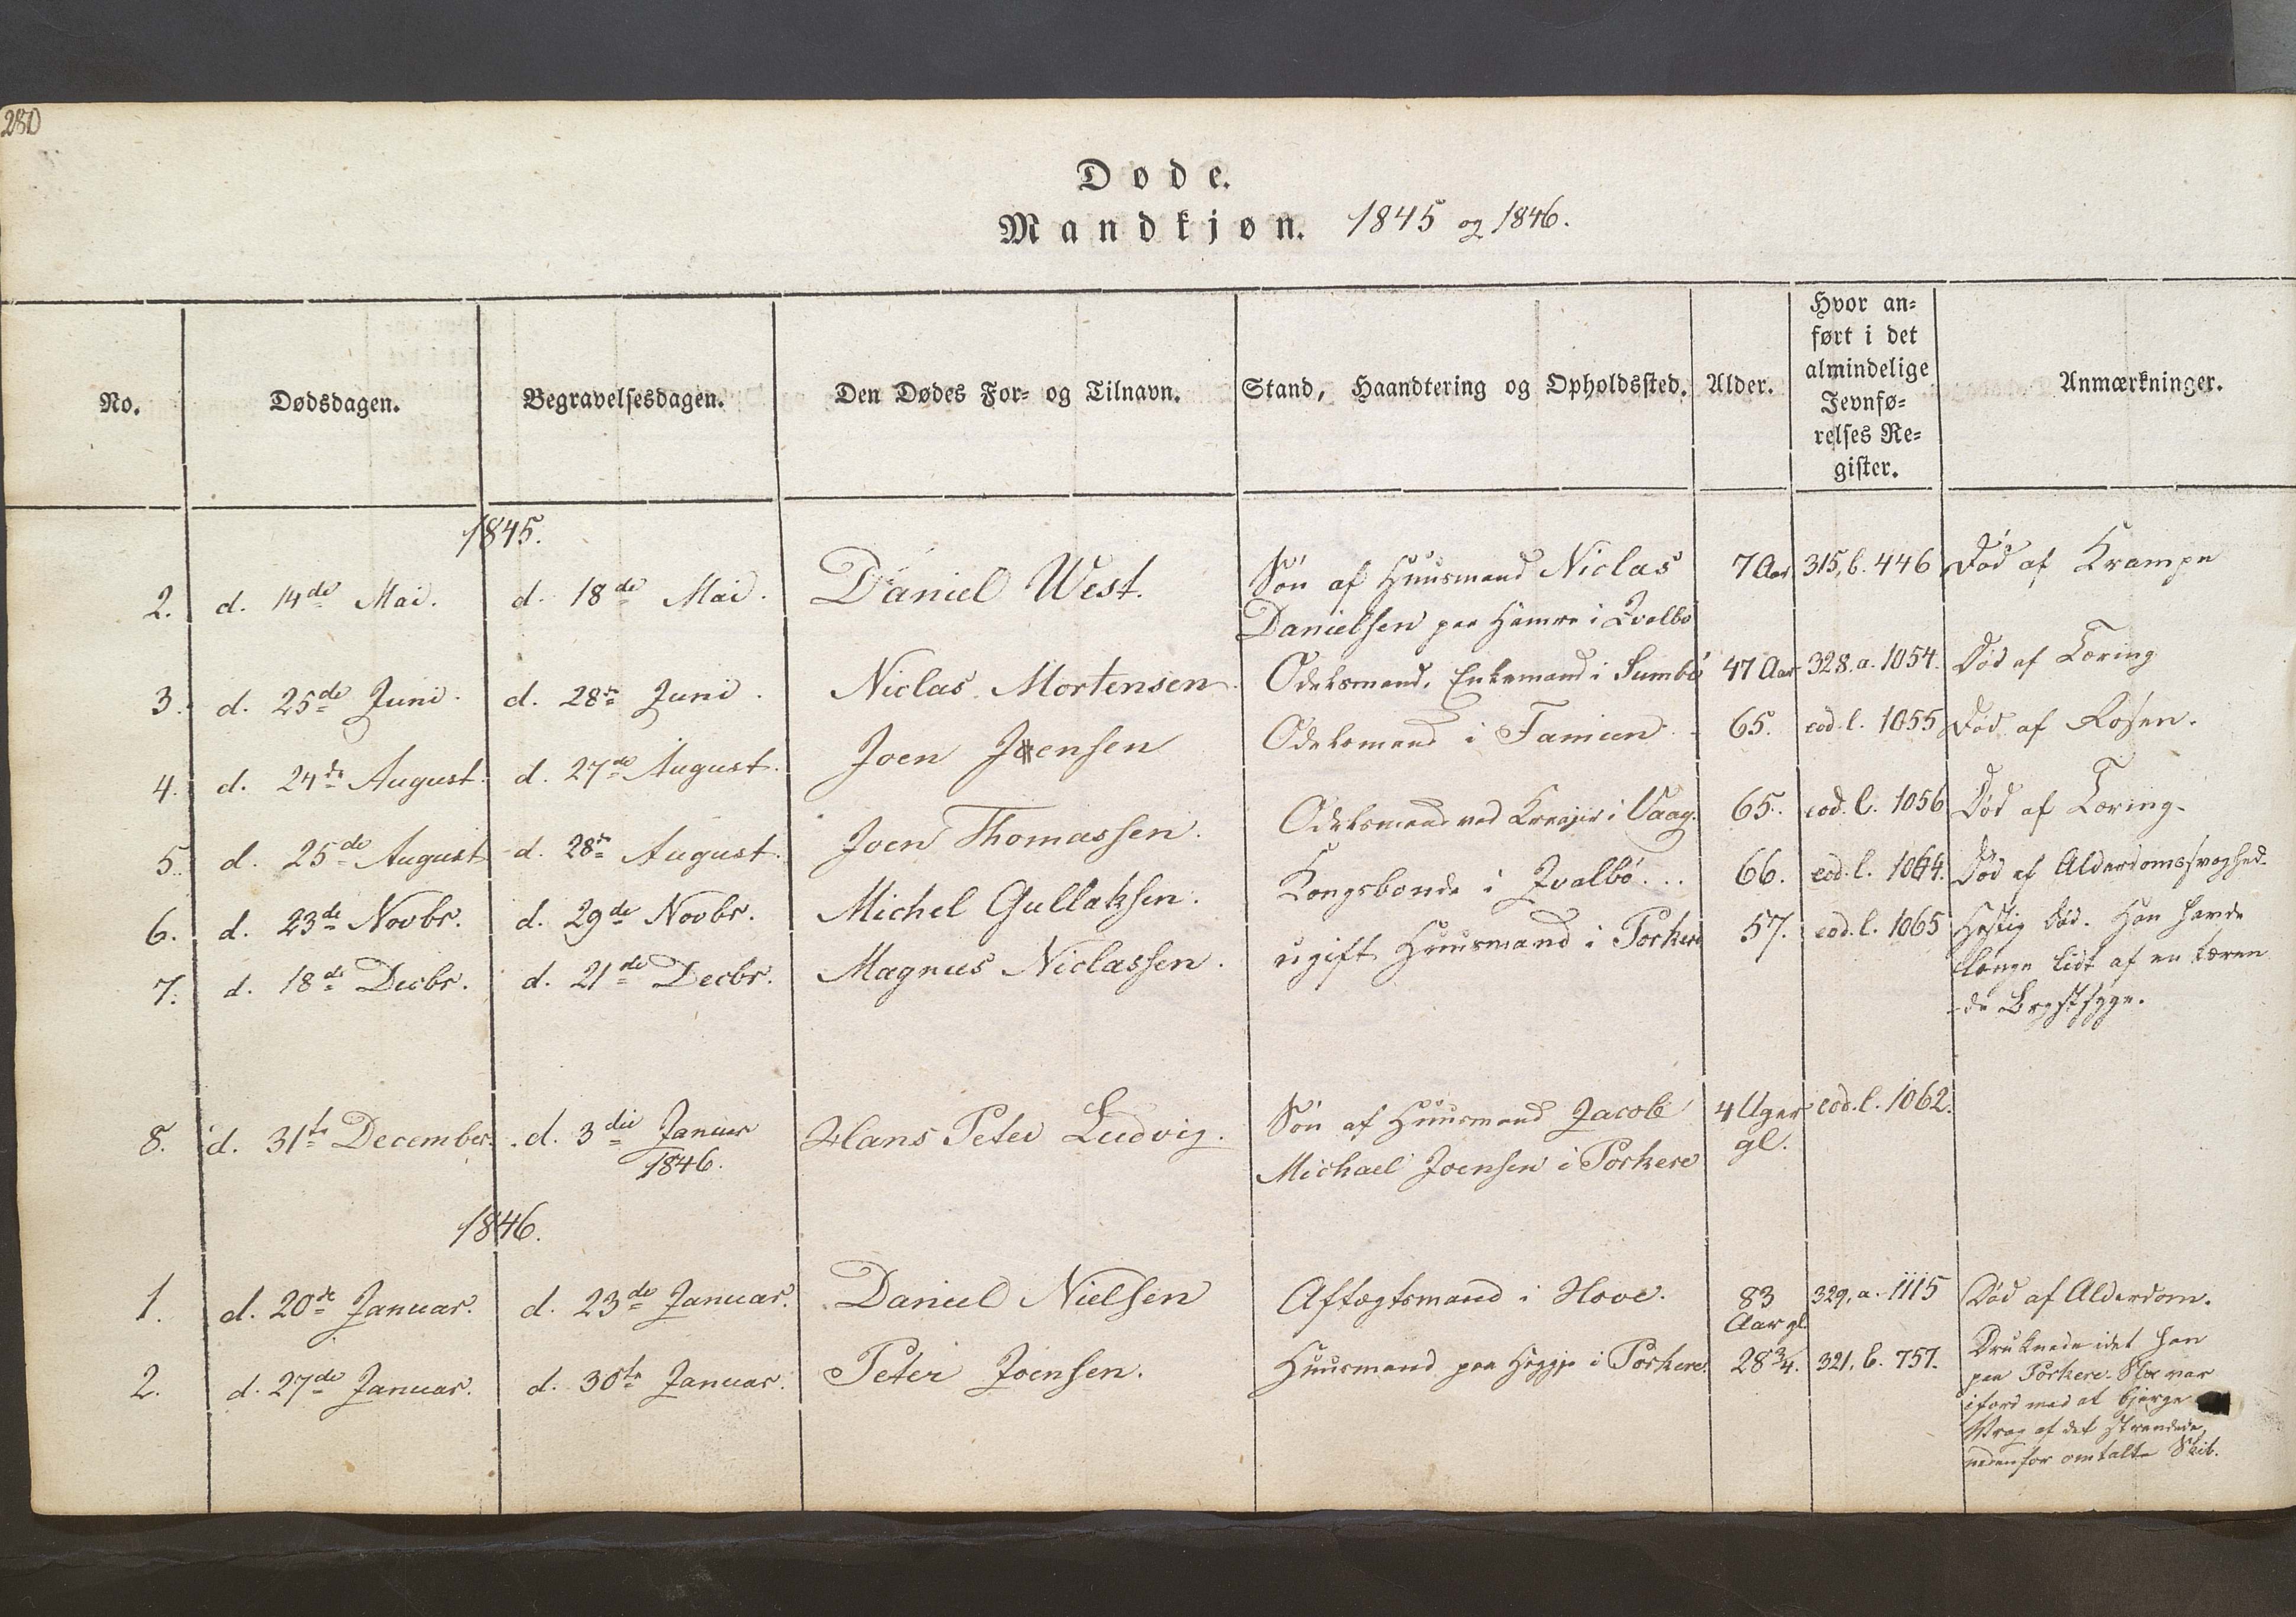 280
Døde.
Mandkjøn. 1845 og 1846.
No.
Dødsdagen.
Begravelsesdagen.
Den Dødes For- og Tilnavn.
Stand, Haandtering og Opholdssted.
Alder.
Hvor an-
ført i det
almindelige
Jevnfø-
relses Re-
gister.
Anmærkninger.
1845.
2. d. 14de Mai. d. 18de Mai. Daniel West. Søn af Huusmand Niclas 7 Aar 315, b. 446 Død af Krampe
Danielsen paa Hamre i Qvalbø
3. d. 25de Juni. d. 28de Juni. Niclas Mortensen. Odelsmand, Enkemand i Sumbø 47 Aar 328, a. 1054. Død af Tæring
4. d. 24de August. d. 27de August. Joen Joensen Odelsmand i Famien. 65. eod. l. 1055 Død af Rosen.
5. d. 25de August d. 28de August. Joen Thomassen. Odelsmand ved i Vaag. 65. eod. l. 1056 Død af Tæring.
6. d. 23de Novbr. d. 29de Novbr. Michel Gullaksen. Kongsbonde i Qvalbø... 66. eod. l. 1064. Død af Alderdomssvaghed.
7. d. 18de Decbr. d. 21de Decbr. Magnus Niclassen. ugift Huusmand i Porkere 57. eod. l. 1065 Hastig død. Han havde
længe lidt af en tæren
de Brystsyge.
8. d. 31te December. d. 3die Januar Hans Peter Ludvig. Søn af Huusmand Jacob 4 Uger eod. l. 1062.
1846. Michael Joensen i Porkere gl.
1846.
1. d. 20de Januar. d. 23de Januar. Daniel Nielsen Aftægtsmand i Hove. 83 329, a. 1115 Død af Alderdom.
Aar gl.
2. d. 27de Januar. d. 30te Januar. Peter Joensen. Huusmand paa Heggje i Porkere. 28 3/4. 321, b. 757. Druknede idet han
paa Porkere var
ifærd med at bjerge
Vrag af det strandede,
nedenfor omtalte Skib.